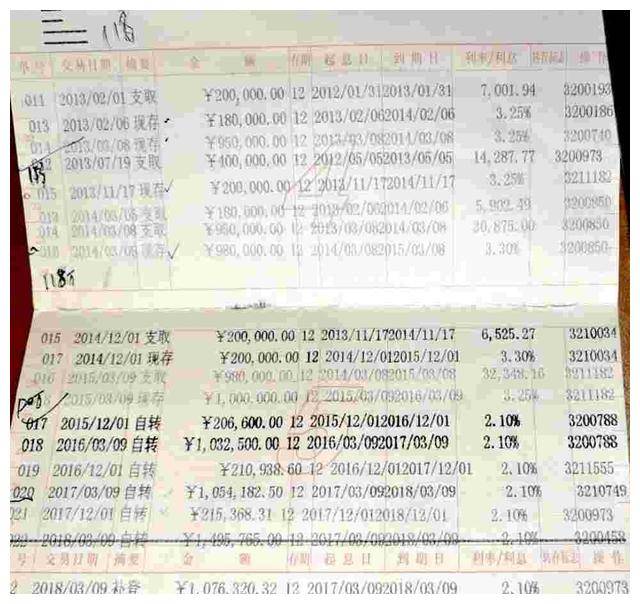 11万
单号 交易日期 摘要 金 额 存期 起息日 到期日 利率/利息 操作
011 2013/02/01 支取 ¥200,000.00 12 2012/01/31 2013/01/31 7,001.94 3200193
013 2013/02/06 现存 ¥180,000.00 12 2013/02/06 2014/02/06 3.25% 3200186
014 2013/03/08 现存 ¥950,000.00 12 2013/03/08 2014/03/08 3.25% 3200740
012 2013/07/19 支取 ¥400,000.00 12 2012/05/05 2013/05/05 14,287.77 3200973
015 2013/11/17 现存 ¥200,000.00 12 2013/11/17 2014/11/17 3.25% 3211182
013 2014/03/08 支取 ¥180,000.00 12 2013/02/06 2014/02/06 3200850
014 2014/03/08 支取 ¥950,000.00 12 2013/03/08 2014/03/08 30,875.00 3200850
016 2014/03/08 现存 ¥980,000.00 12 2014/03/08 2015/03/08 3.30% 3200850
118万
015 2014/12/01 支取 ¥200,000.00 12 2013/11/17 2014/11/17 6,525.27 3210034
017 2014/12/01 现存 ¥200,000.00 12 2014/12/01 2015/12/01 3.30% 3210034
016 2015/03/09 支取 ¥980,000.00 12 2014/03/08 2015/03/08 32,348.16 3211182
2015/03/09 现存 ¥1,000,000.00 12 2015/03/09 2016/03/09 3.25% 3211182
017 2015/12/01 自转 ¥206,600.00 12 2015/12/01 2016/12/01 2.10% 3200788
018 2016/03/09 自转 ¥1,032,500.00 12 2016/03/09 2017/03/09 2.10% 3200788
019 2016/12/01 自转 ¥210,938.60 12 2016/12/01 2017/12/01 2.10% 3211555
020 2017/03/09 自转 ¥1,054,182.50 12 2017/03/09 2018/03/09 2.10% 3210749
021 2017/12/01 自转 ¥215,368.31 12 2017/12/01 2018/12/01 2.10% 3200973
2018/03/09 自转 12 2017/03/09 2018/03/09 2.10% 3200458
号 交易日期 摘要 金 额 存期 起息日 到期日 利率/利息 操作
2 2018/03/09 补登 ¥1,076,320.32 12 2017/03/09 2018/03/09 2.10% 3200973